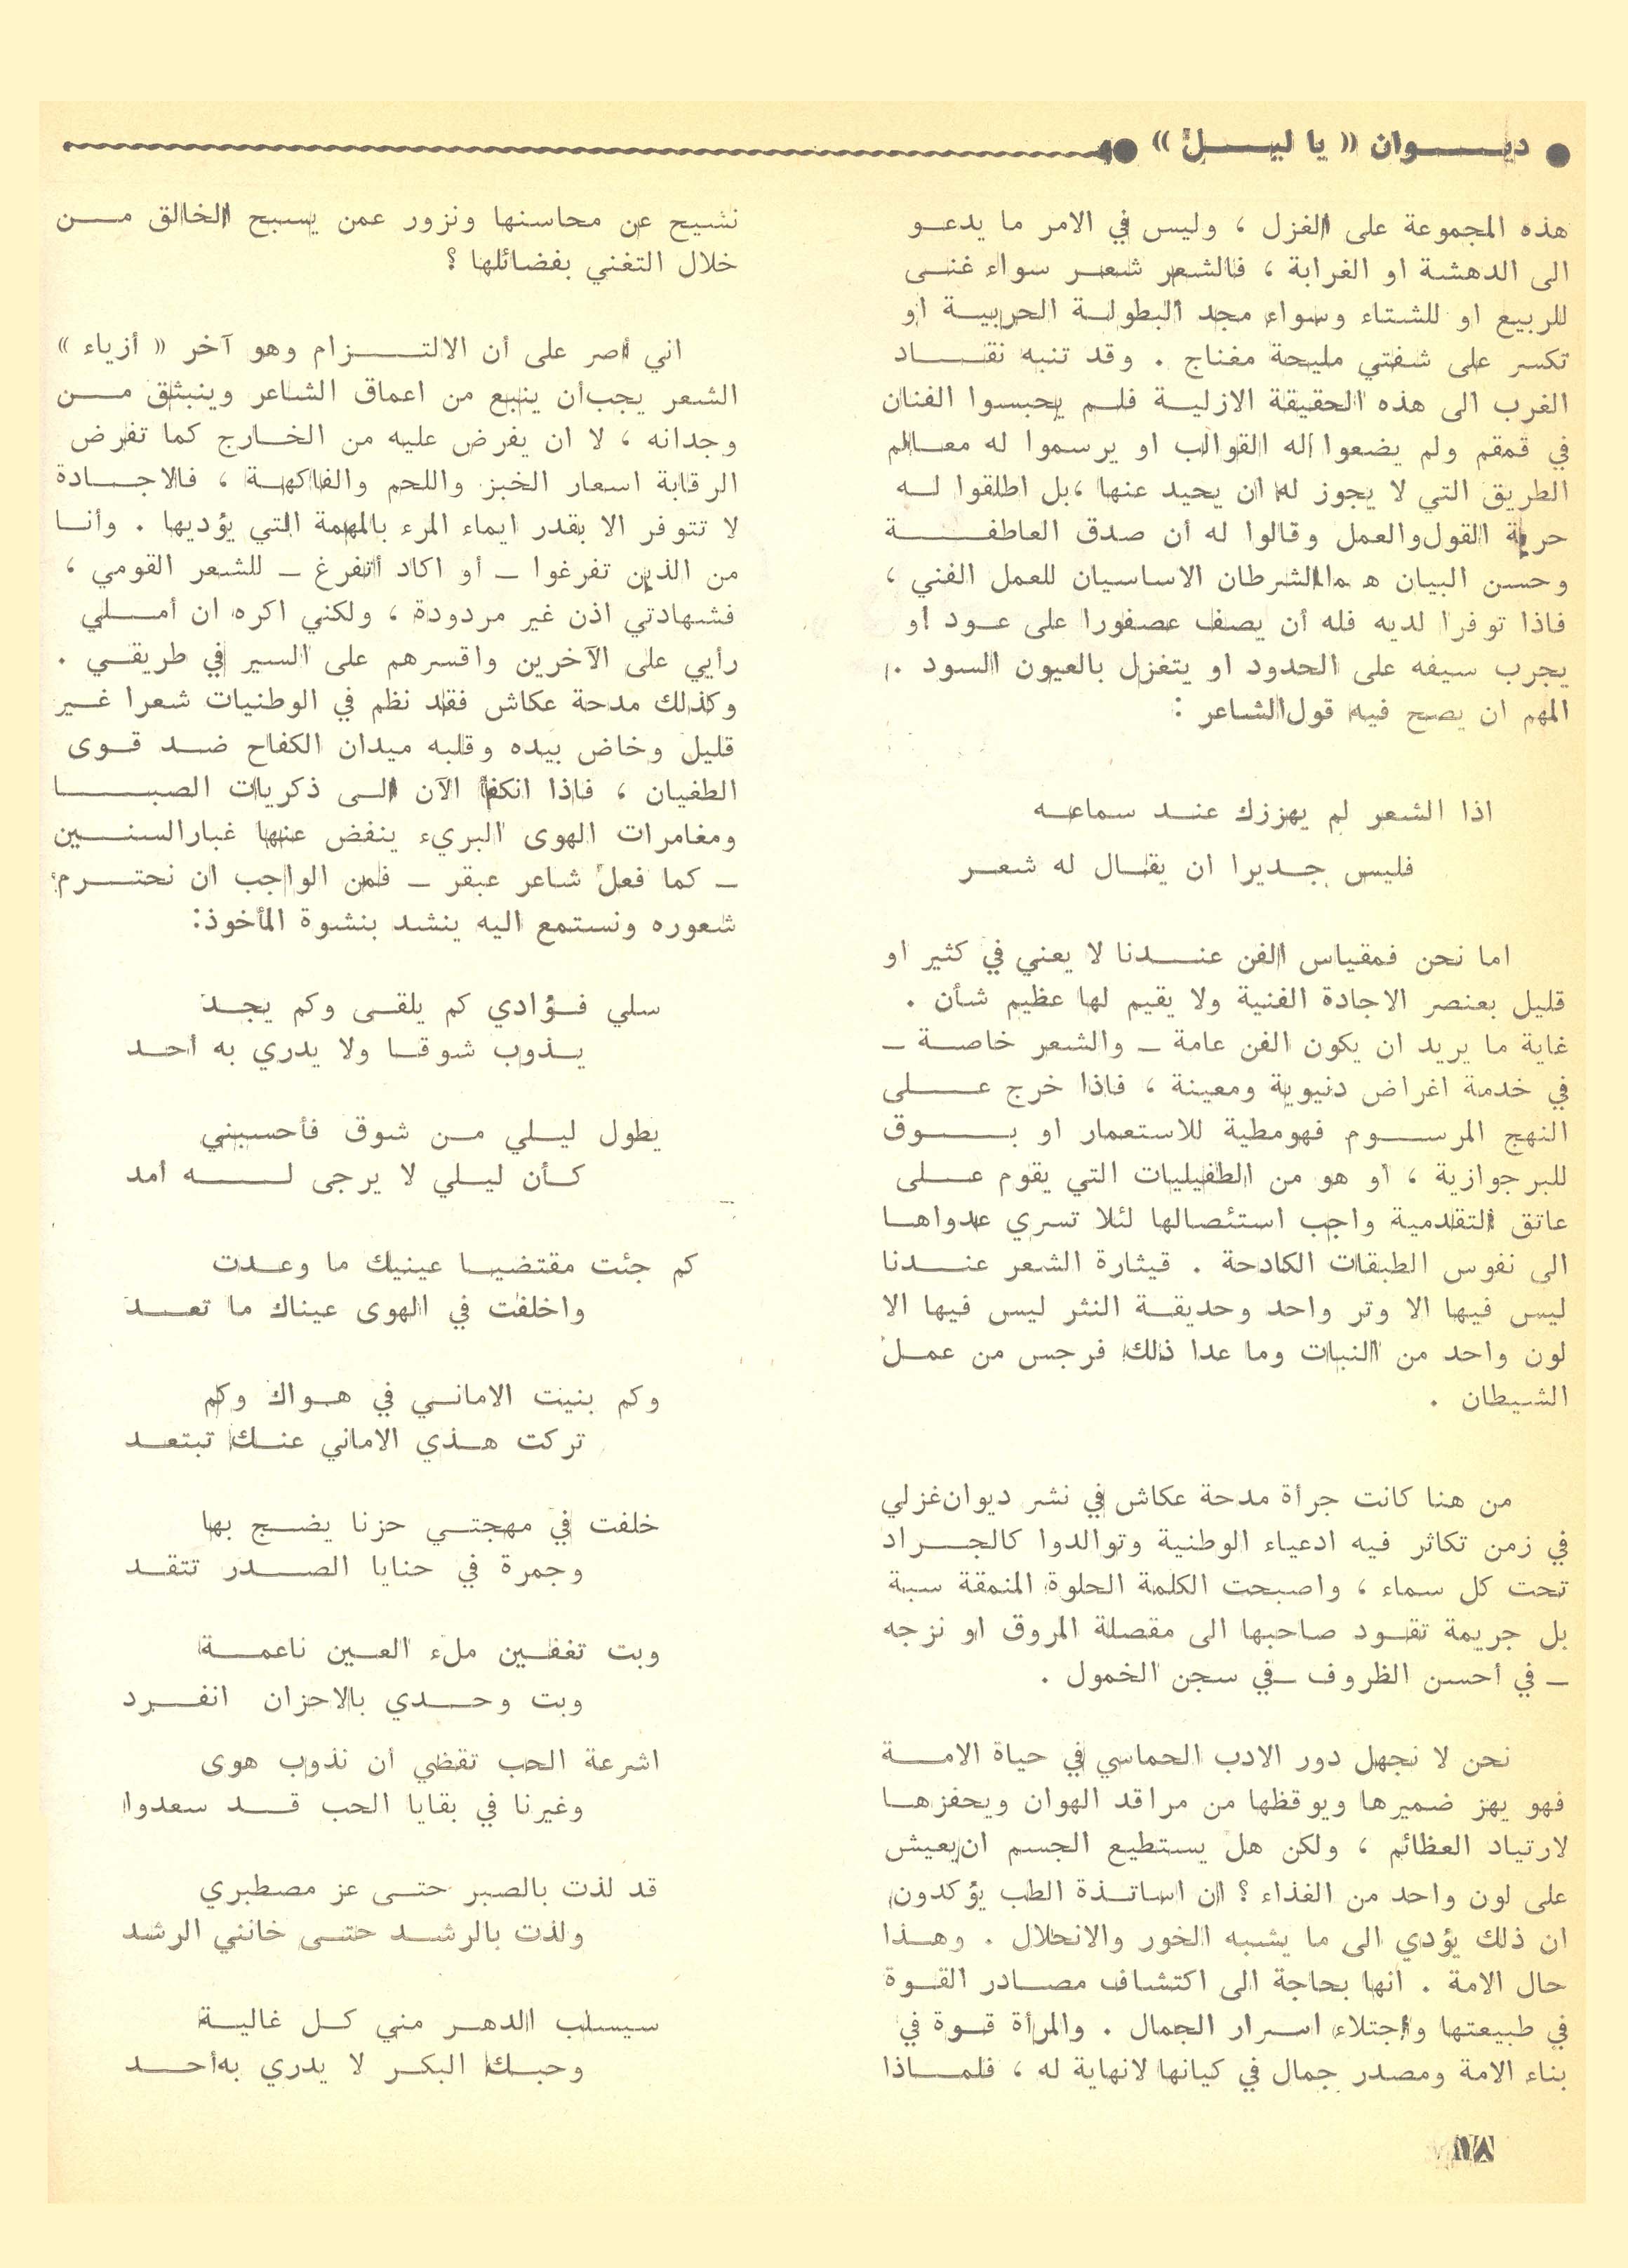 ديـــوان « يا ليـــل »
هذه المجموعة على الغزل ، وليس في الامر ما يدعــو
الى الدهشة او الغرابة ، فالشعر شعــر سواء غنــى
للربيع او للشتاء وسواء مجد البطولــة الحربيــة او
تكسر على شفتي مليحة مغناج . وقد تنبه نقـــاد
الغرب الى هذه الحقيقة الازليــة فلــم يحبسوا الفنان
في قمقم ولم يضعوا له القوالب او يرسموا له معــالم
الطريق التي لا يجوز له ان يحيد عنها ، بل اطلقوا لــه
حرية القول والعمل وقالوا له أن صدق العاطفـــة
وحسن البيان هما الشرطان الاساسيان للعمل الفني ،
فاذا توفرا لديه فله أن يصف عصفورا على عــود او
يجرب سيفه على الحدود او يتغزل بالعيون السود .
المهم ان يصح فيه قول الشاعر :
اذا الشعر لم يهززك عنــد سماعــه
فليس جــديرا ان يقــال له شعــر
اما نحن فمقياس الفن عنـــدنا لا يعني في كثير او
قليل بعنصر الاجادة الفنية ولا يقيم لها عظيم شأن .
غاية ما يريد ان يكون الفن عامة ـ والشعر خاصــة ـ
في خدمة اغراض دنيوية ومعينة ، فاذا خرج علــى
النهج المرســوم فهو مطية للاستعمار او بـــوق
للبرجوازية ، او هو من الطفيليات التي يقوم علــى
عاتق التقدمية واجب استئصالها لئلا تسري عدواهــا
الى نفوس الطبقات الكادحة . قيثارة الشعر عنـــدنا
ليس فيها الا وتر واحد وحديقــة النثر ليس فيها الا
لون واحد من النبات وما عدا ذلك فرجس من عمــل
الشيطان .
من هنا كانت جرأة مدحة عكاش في نشر ديوان غزلي
في زمن تكاثر فيه ادعياء الوطنية وتوالدوا كالجــراد
تحت كل سماء ، واصبحت الكلمة الحلوة المنمقة سبة
بل جريمة تقــود صاحبها الى مقصلة المروق او نزجه
ـ في أحسن الظروف ـ في سجن الخمول .
نحن لا نجهل دور الادب الحماسي في حياة الامــة
فهو يهز ضميرها ويوقظها من مراقد الهوان ويحفزهــا
لارتياد العظائم ، ولكن هل يستطيع الجسم ان يعيش
على لون واحد من الغذاء ؟ ان اساتــذة الطب يؤكدون
ان ذلك يؤدي الى ما يشبه الخور والانحلال . وهــذا
حال الامة . انها بحاجة الى اكتشاف مصــادر القــوة
في طبيعتها واجتلاء اسرار الجمال . والمرأة قــوة في
بناء الامة ومصدر جمال في كيانها لا نهاية له ، فلمــاذا
نشيح عن محاسنها ونزور عمن يسبح الخالق مــن
خلال التغني بفضائلها ؟
اني أصر على أن الالتـــزام وهو آخر « أزياء »
الشعر يجب أن ينبع من اعماق الشاعر وينبثق مــن
وجدانه ، لا ان يفرض عليه من الخــارج كما تفرض
الرقابة اسعار الخبز واللحم والفاكهــة ، فالاجــادة
لا تتوفر الا بقدر ايماء المرء بالمهمة التي يؤديها . وأنــا
من الذين تفرغوا ـ أو اكاد أتفرغ ـ للشعر القومي ،
فشهادتي اذن غير مردودة ، ولكني اكره ان أملــي
رأيي على الآخرين واقسرهم على السير في طريقــي .
وكذلك مدحة عكاش فقد نظم في الوطنيات شعرا غــير
قليل وخاض بيده وقلبه ميدان الكفاح ضــد قــوى
الطغيان ، فاذا انكفأ الآن الــى ذكريات الصبـــا
ومغامرات الهوى البريء ينفض عنها غبار السنــين
ـ كما فعل شاعر عبقر ـ فمن الواجب ان نحتــرم
شعوره ونستمع اليه ينشد بنشوة المأخوذ:
سلي فــؤادي كم يلقــى وكم يجــد
يــذوب شوقــا ولا يدري به أحــد
يطول ليــلي مــن شوق فأحسبني
كــأن ليــلي لا يرجى لـــه أمد
كم جئت مقتضيــا عينيك ما وعــدت
واخلفت في الهوى عيناك ما تعــد
وكم بنيت الامانــي في هــواك وكم
تركت هــذي الاماني عنــك تبتعــد
خلفت في مهجتــي حزنا يضــج بها
وجمرة في حنايا الصــدر تتقــد
وبت تغفــين ملء العــين ناعمــة
وبت وحــدي بالاحزان انفــرد
اشرعة الحب تقضي أن نذوب هوى
وغيرنا في بقايا الحب قــد سعدوا
قد لذت بالصبر حتــى عز مصطبري
ولذت بالرشــد حتــى خانني الرشد
سيسلب الدهــر مني كــل غاليــة
وحبــك البكــر لا يدري به أحــد